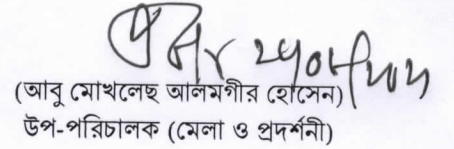 (আবু মোখলেছ আলমগীর হোসেন)
উপ-পরিচালক (মেলা ও প্রদর্শনী)